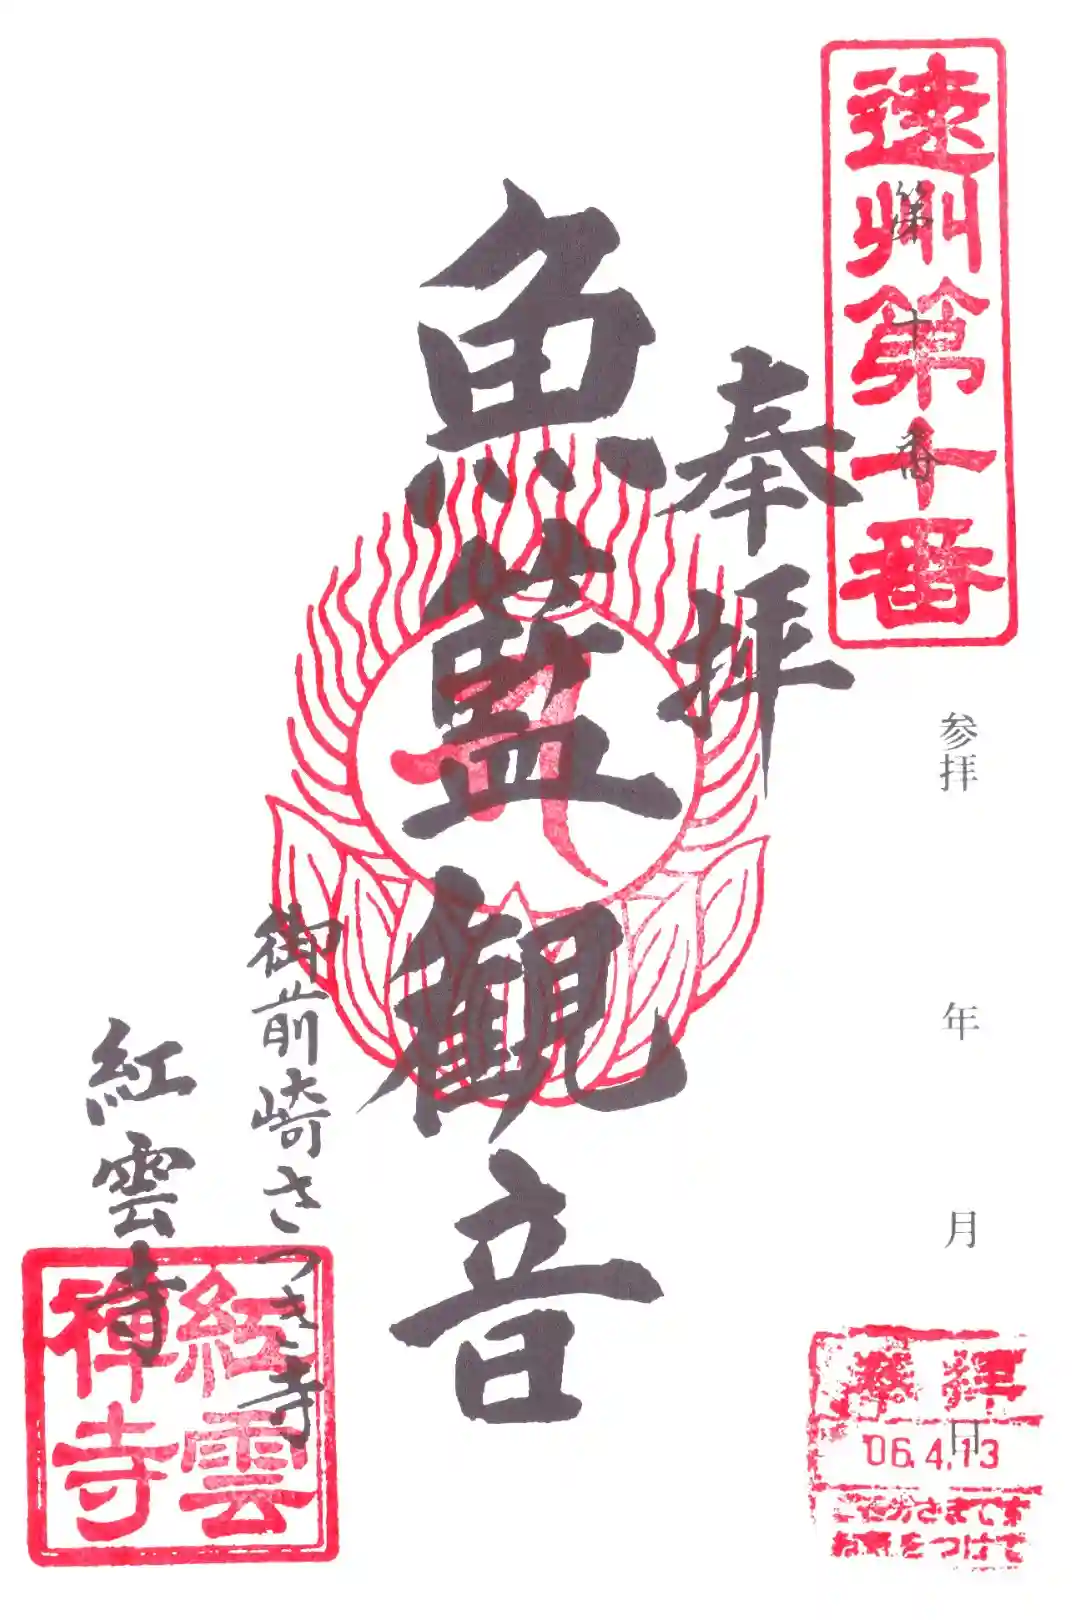 遠州第十番
第十番
参拝 年 月 日
奉拝
魚籃観音
御前崎さつき寺
紅雲寺
紅雲
禅寺
奉拝
'06.4.13
ご苦労さまです
お気をつけて